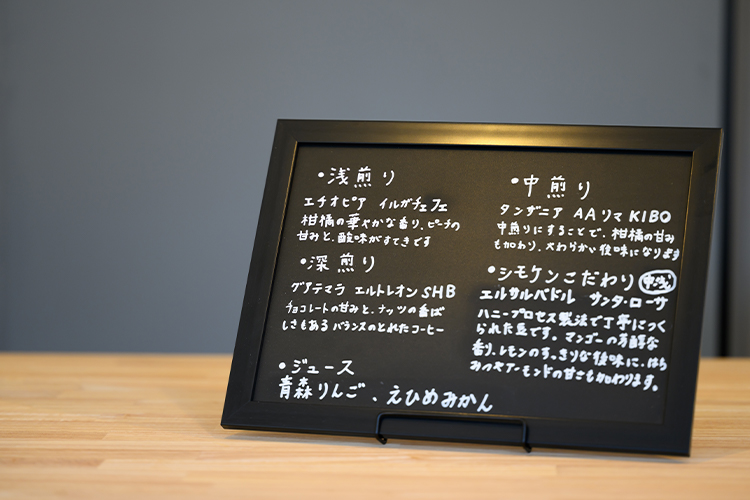 ・浅煎り
エチオピア イルガチェフェ
柑橘の華やかな香り、ピーチの
甘みと、酸味がすてきです
・深煎り
グアテマラ エルトレオン SHB
チョコレートの甘みと、ナッツの香ば
しさもある バランスのとれたコーヒー
・ジュース
青森りんご、えひめみかん
・中煎り
タンザニア AAリマ KIBO
中煎りにすることで、柑橘の甘み
も加わり、やわらかい後味になります
・シモケンこだわり
エルサルバドル サンタ・ローサ
ハニープロセス製法で丁寧につく
られた豆です。マンゴーの芳醇な
香り、レモンのすっきりな後味に、はち
みつやアーモンドの甘さも加わります。